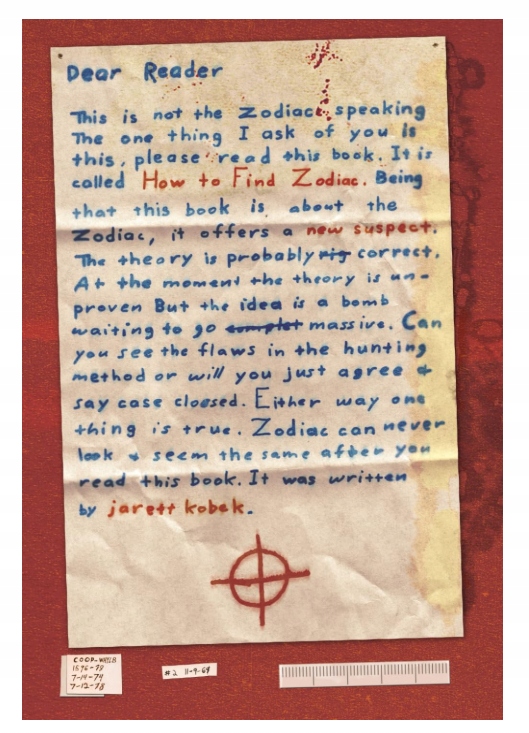 Dear Reader
This is not the Zodiac speaking
The one thing I ask of you is
this, please read this book. It is
called How to Find Zodiac. Being
that this book is about the
Zodiac, it offers a new suspect.
The theory is probably rig correct.
At the moment the theory is un-
proven But the idea is a bomb
waiting to go complet massive. Can
you see the flaws in the hunting
method or will you just agree &
say case cloesed. Either way one
thing is true. Zodiac can never
look & seem the same after you
read this book. It was written
by jarett kobek.
COOP-WEBB
1596-79
7-14-79
7-12-78
#2 11-9-69